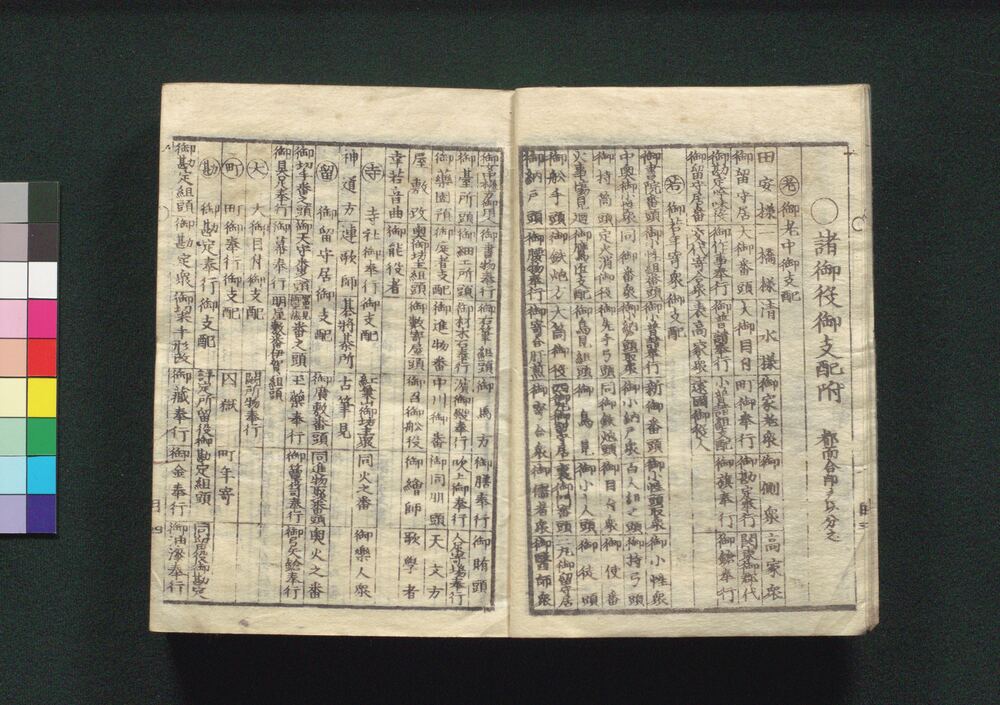 諸御役御支配附
都而合印ヲ以分之
老 御老中御支配
田安様 一橋様 清水様 御家老衆 御側衆 高家衆
御留守居 大御番頭 大御目付 町御奉行 御勘定奉行 関東御郡代
御勘定吟味役 御作事奉行 御普請奉行 小普請組支配 御旗奉行 御鎗奉行
御留守居番
若 御若年寄衆御支配
御書院番頭 御小性組番頭 御普請奉行 新御番頭 御小性頭取衆 御小性衆
中奥御小性衆 同御番衆 御小納戸衆 百人組之頭 御持弓頭
御持筒頭 定火消御役 御先手弓頭 同御鉄炮頭 御目付衆 御使番
火事場見廻 御鳥見組頭 御鳥見 御小人頭 御徒頭
御舩手頭 御鉄炮方 大筒御役 二丸御留守居
御納戸頭 御腰物奉行 御寄合肝煎 御寄合衆 御儒者衆 御醫師衆
御書物奉行 御右筆組頭 御馬方 御腰奉行 御賄頭
御臺所頭 御細工所頭 御材木石奉行 濱御殿奉行 吹上御奉行
御藥園預 御庭者支配 御進物番 中川御番 御同朋頭 天文方
屋敷改 奥御坊主組頭 御数寄屋頭 御召御舩役 御繪師 歌學者
幸若音曲 御能役者
寺 寺社御奉行御支配
神道方 連歌師 碁将棊所 古筆見 紅葉山御坊主衆 同火之番 御樂人衆
留 御留守居御支配
御廣敷番頭 同進物取番頭 奥火之番
御切手番之頭 御天守番之頭 番之頭 玉藥奉行 御弓矢鎗奉行
御具足奉行 御幕奉行 明屋敷番伊賀組頭
大 大御目付御支配
闕所物奉行
町 町御奉行御支配
囚獄 町年寄
勘 御勘定奉行御支配
評定所留役御勘定組頭 同留役御勘定
御勘定組頭 御勘定衆 御切米手形改 御藏奉行 御金奉行 御油漆奉行